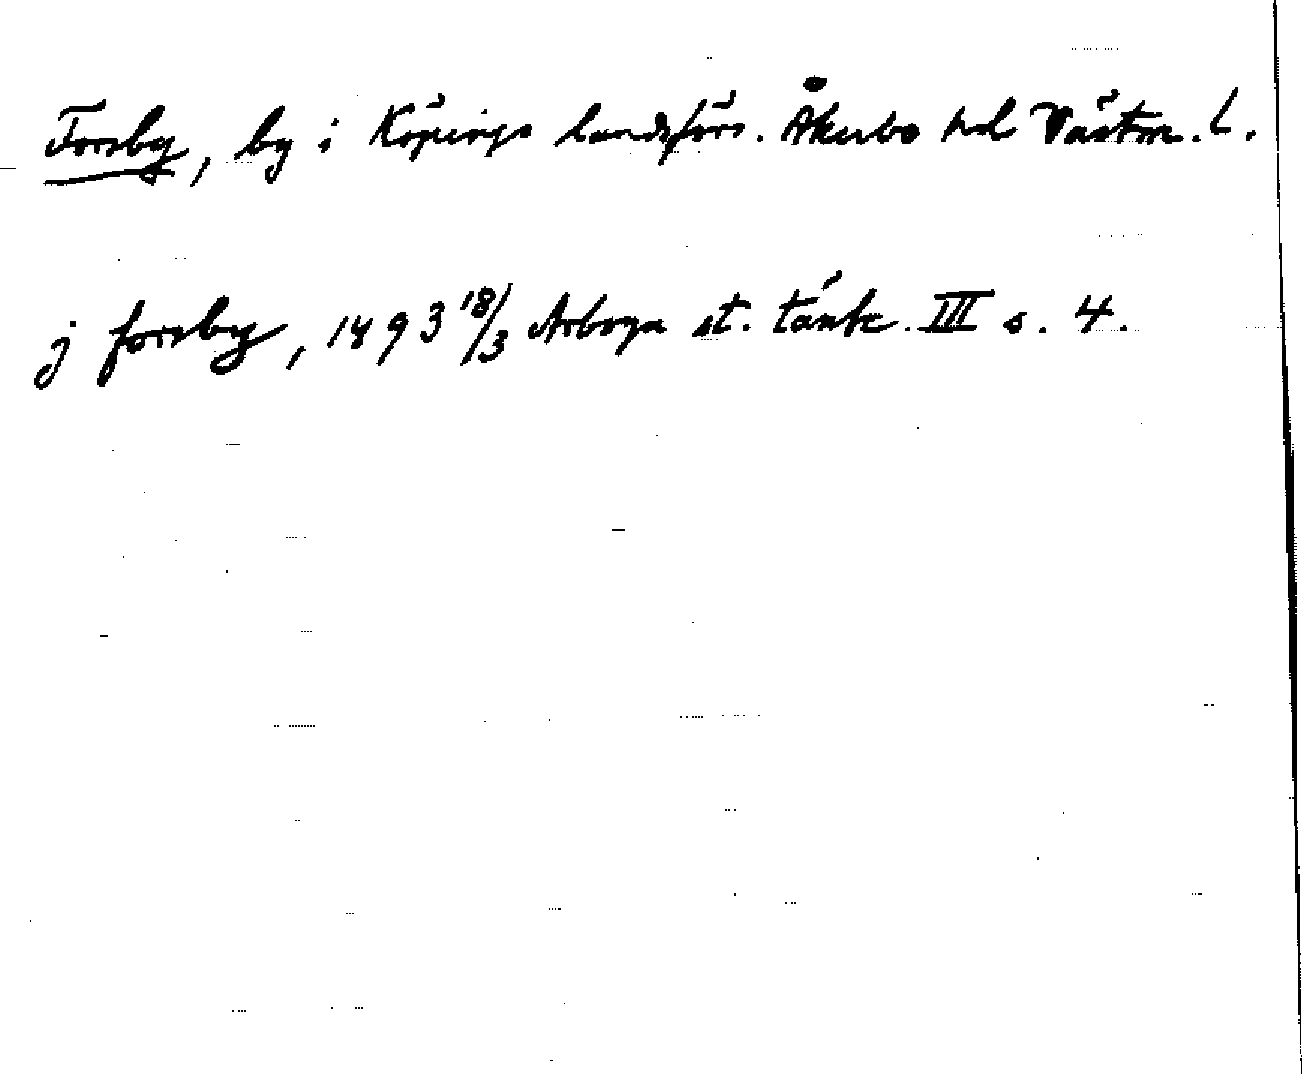 Forsby, by i Köpings landsförs. Åkerbo hd Västm. L.
j forsby, 1493 18/3 Arboga st. tänkb. III s. 4.